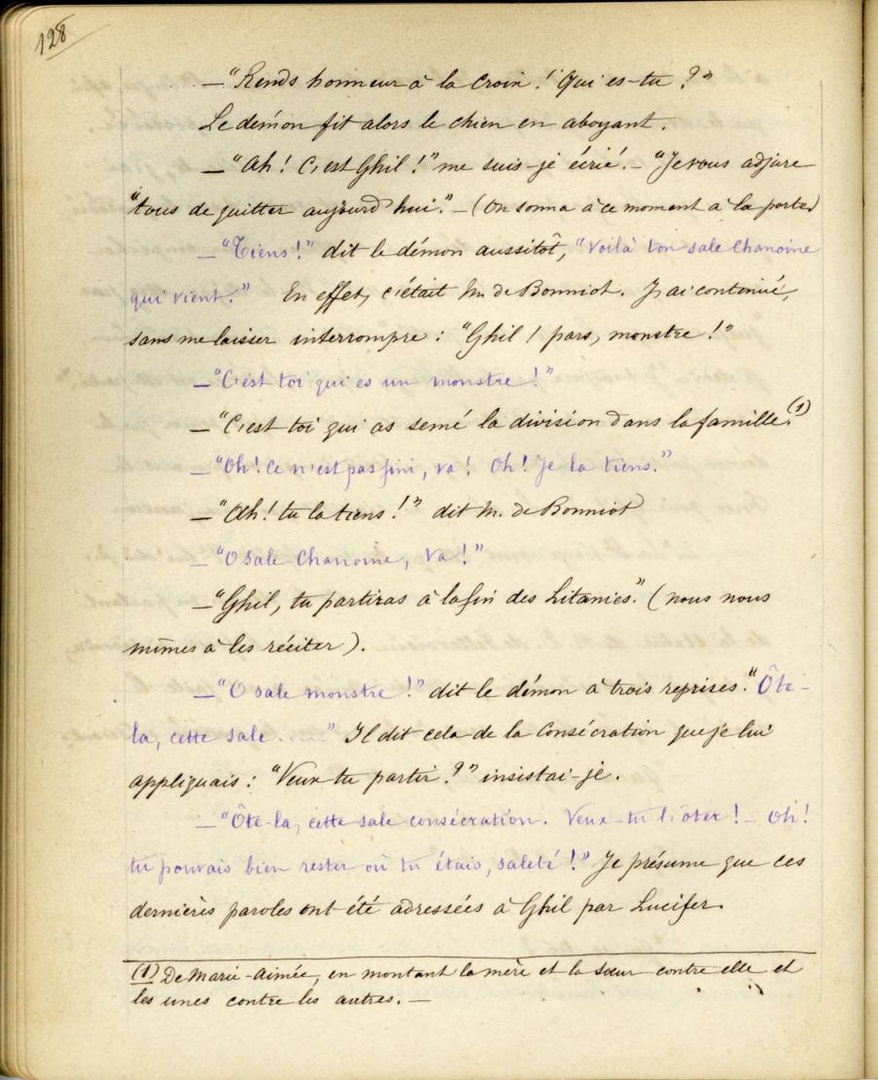 128
—"Rends honneur à la Croix! Qui es-tu?"
Le démon fit alors le chien en aboyant.
—"Ah! C'est Ghil!" me suis-je écrié. — "Je vous adjure
"tous de quitter aujourd'hui." — (On sonna à ce moment à la porte)
—"Tiens!" dit le démon aussitôt, "voilà ton sale Chanoine
qui vient." En effet, c'était M. de Bonniot. J'ai continué,
sans me laisser interrompre: "Ghil! pars, monstre!"
—"C'est toi qui es un monstre!"
—"C'est toi qui as semé la division dans la famille."(1)
—"Oh! Ce n'est pas fini, va! Oh! Je la tiens."
—"Ah! tu la tiens!" dit M. de Bonniot
—"O sale Chanoine, va!"
—"Ghil, tu partiras à la fin des Litanies." (nous nous
mîmes à les réciter).
—"O sale monstre!" dit le démon à trois reprises. "Ôte-
la, cette sale ....." Il dit cela de la Consécration que je lui
appliquais: "Veux-tu partir?" insistai-je.
—"Ôte-la, cette sale consécration. Veux-tu l'ôter! — Oh!
tu pouvais bien rester où tu étais, saleté!" Je présume que ces
dernières paroles ont été adressées à Ghil par Lucifer.
(1) De Marie-Aimée, en montant la mère et la sœur contre elle et
les unes contre les autres. —